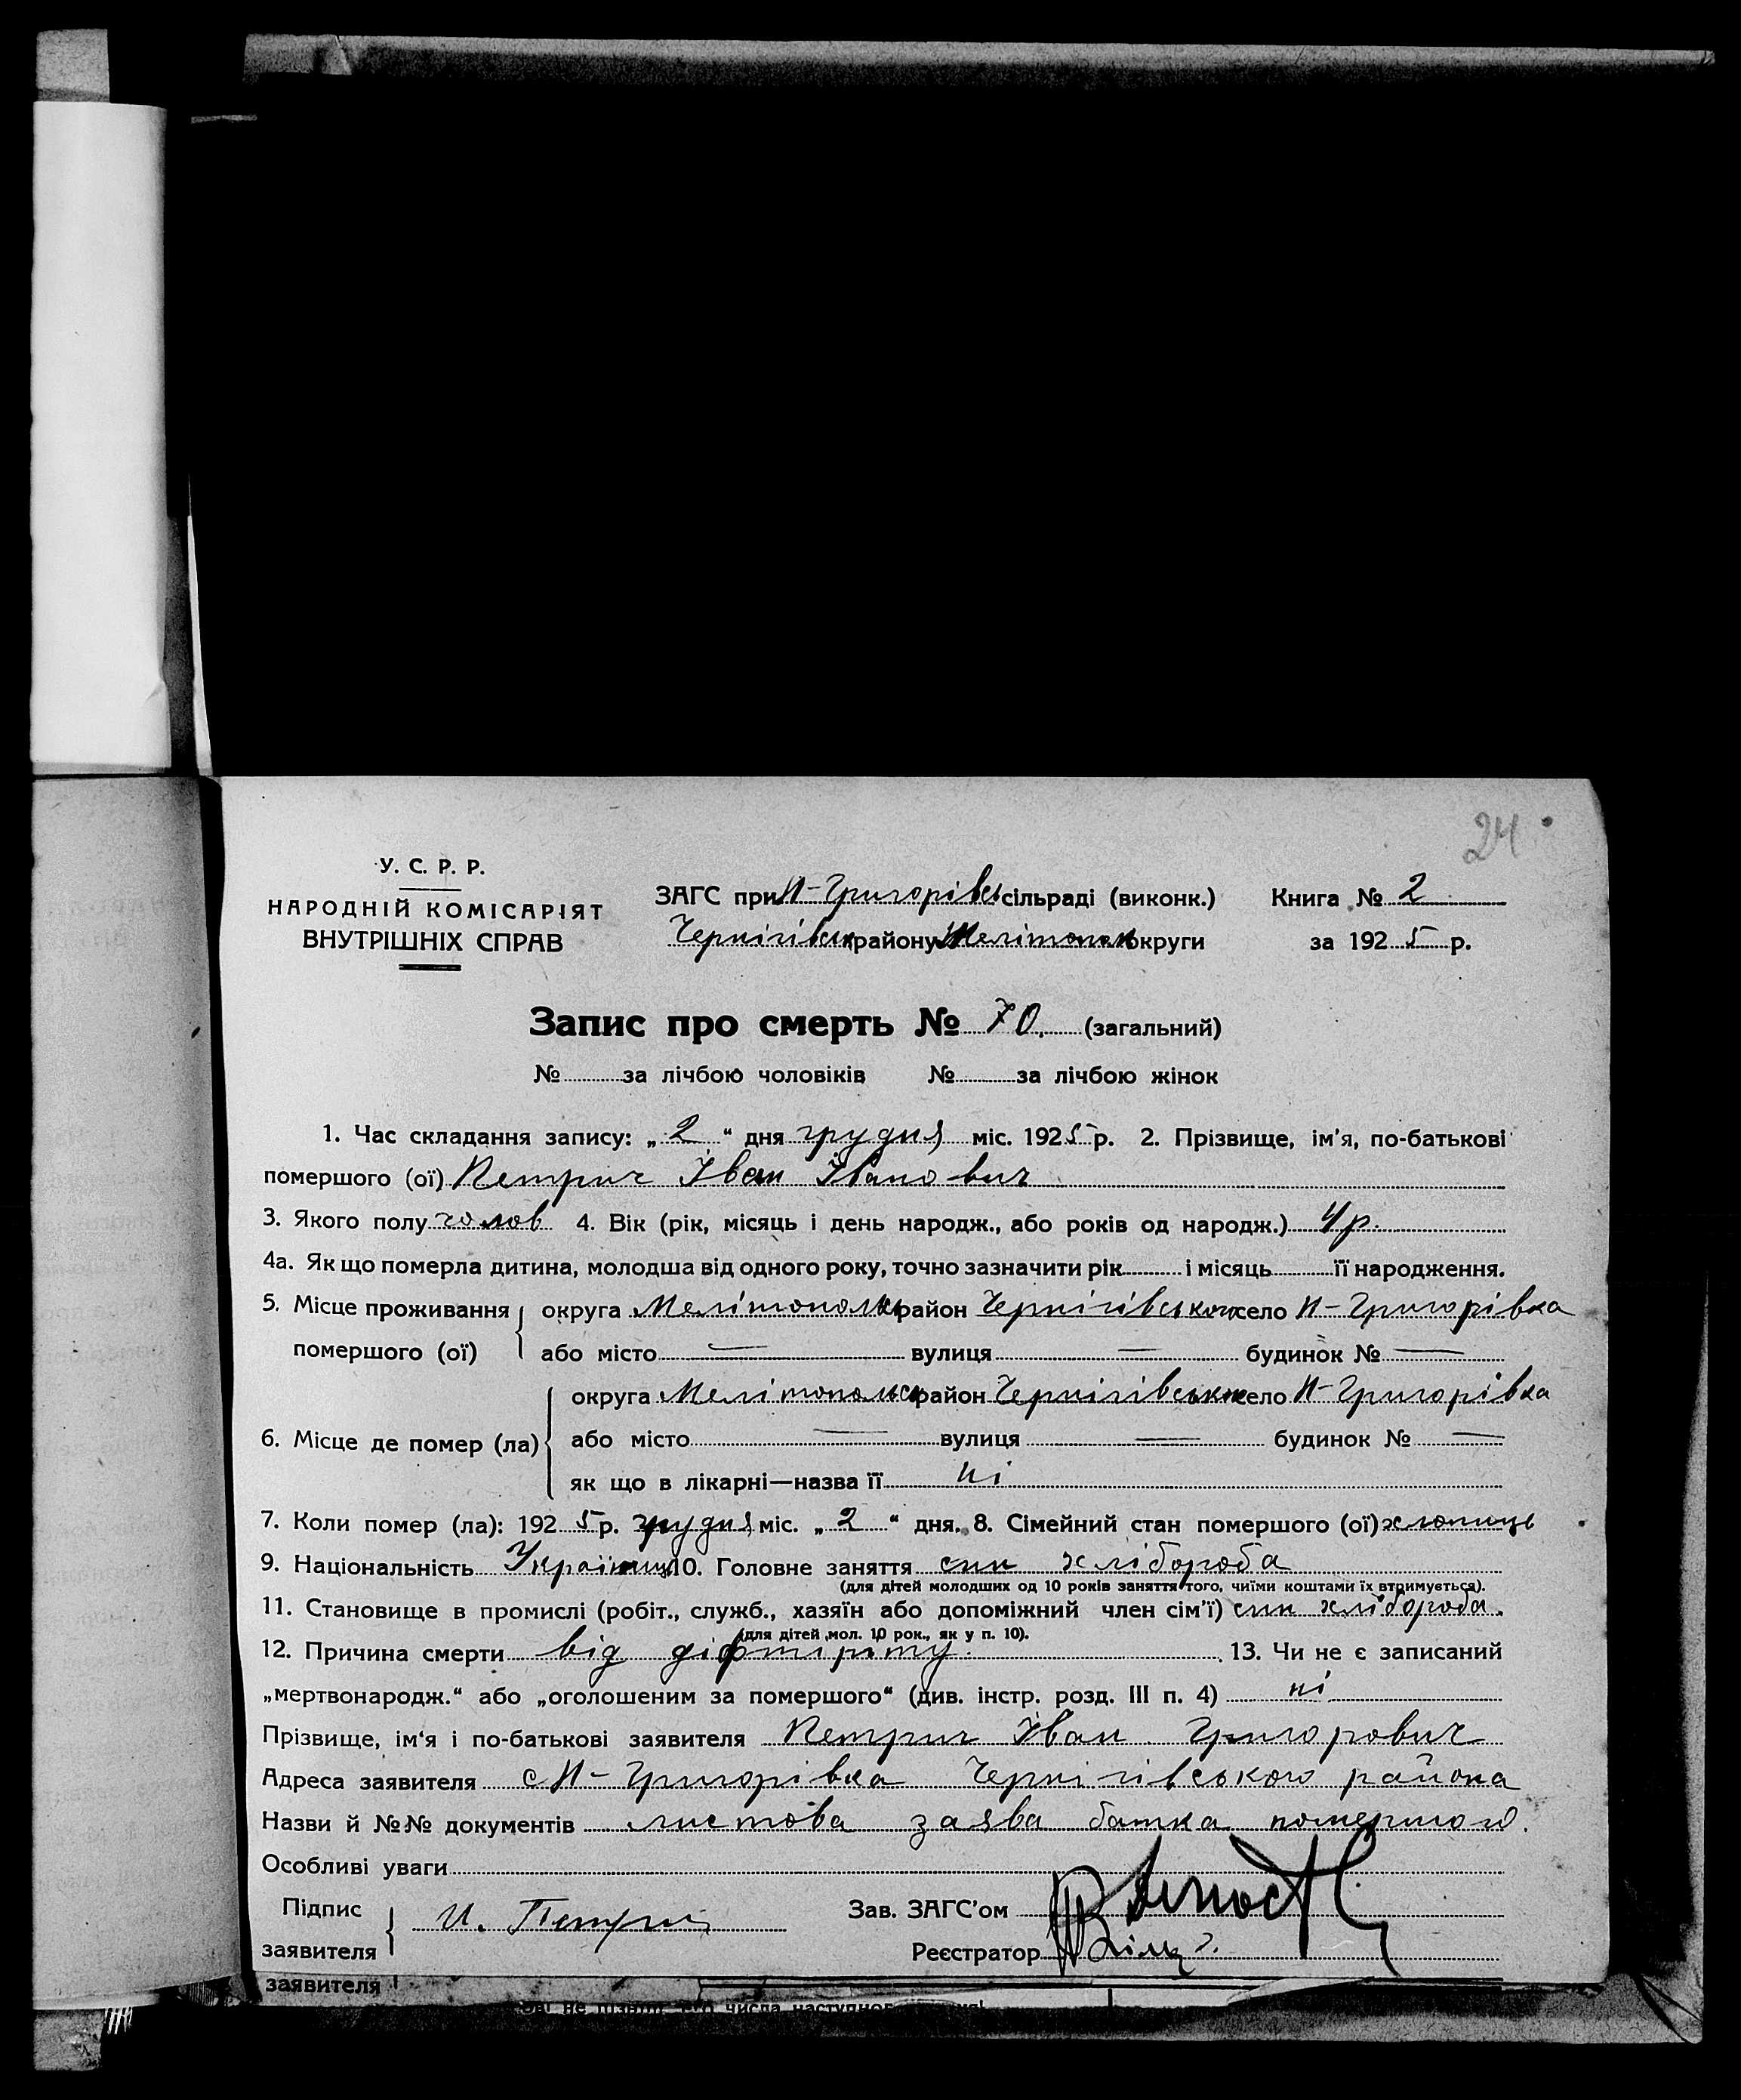 24
У. С. Р. Р.
НАРОДНІЙ КОМІСАРІЯТ
ВНУТРІШНІХ СПРАВ
ЗАГС при Н-Григорівсь сільраді (виконк.) Книга № 2
Чернігівськ району Мелітопольськ округи за 1925 р.
Запис про смерть № 70. (загальний)
№ за лічбою чоловіків № за лічбою жінок
1. Час складання запису: „2“ дня грудня міс. 1925 р. 2. Прізвище, ім'я, по-батькові
помершого (ої) Петрич Іван Іванович
3. Якого полу чолов 4. Вік (рік, місяць і день народж., або років од народж.) 4 р.
4а. Як що померла дитина, молодша від одного року, точно зазначити рік і місяць її народження.
5. Місце проживання округа Мелітопольськ район Чернігівського село Н-Григорівка
помершого (ої) або місто — вулиця — будинок № —
округа Мелітопольськ район Чернігівськ село Н-Григорівка
6. Місце де помер (ла) або місто — вулиця — будинок № —
як що в лікарні—назва її ні
7. Коли помер (ла): 1925 р. грудня міс. „2“ дня. 8. Сімейний стан помершого (ої) хлопиць
9. Національність Українець 10. Головне заняття син хлібороба
(для дітей молодших од 10 років заняття того, чиїми коштами їх втримується).
11. Становище в промислі (робіт., служб., хазяїн або допоміжний член сім'ї) син хлібороба.
(для дітей мол. 10 рок., як у п. 10).
12. Причина смерти від діфтіріту. 13. Чи не є записаний
„мертвонародж.“ або „оголошеним за помершого“ (див. інстр. розд. III п. 4) ні
Прізвище, ім'я і по-батькові заявителя Петрич Іван Григорович
Адреса заявителя с Н-Григорівка Чернігівського района
Назви й №№ документів листова заява батка помершого.
Особливі уваги
Підпис И. Петрич Зав. ЗАГС'ом
заявителя Реєстратор
заявителя